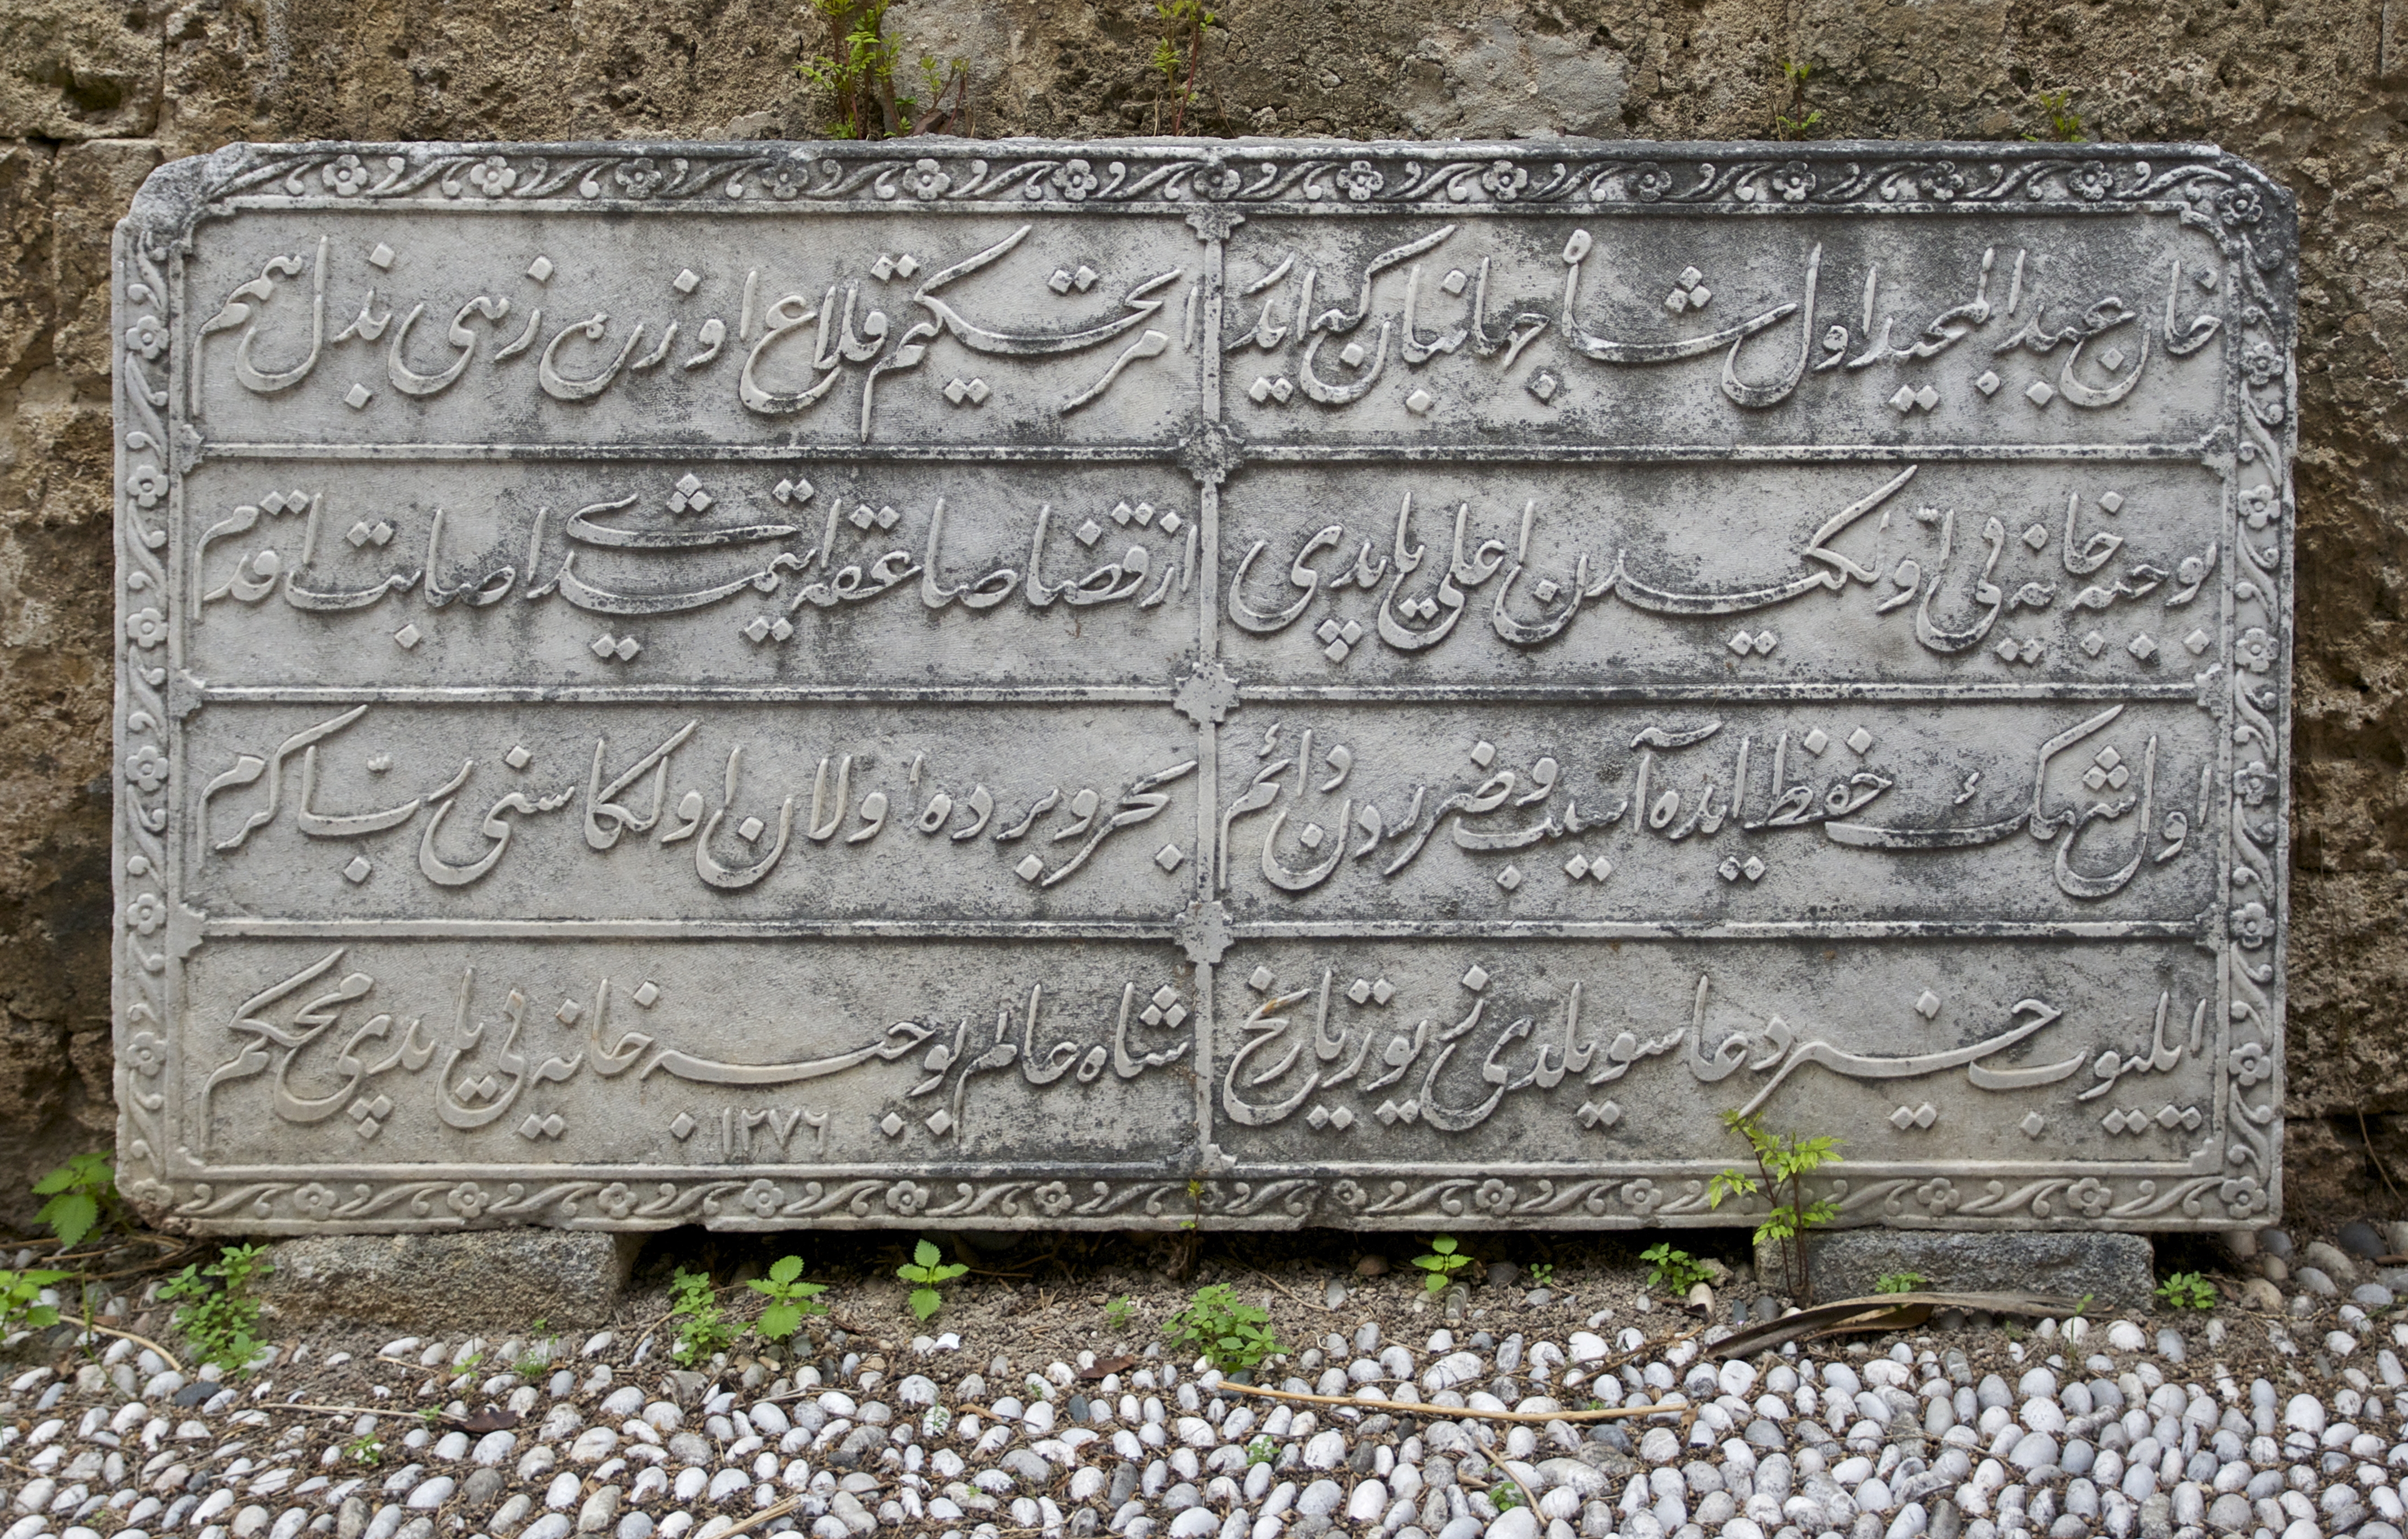 خان عبد المجید اول شاه جهانبان که ایدر
امر تحکیم قلاع اوزره زهی بذل همم
بو جبه خانه یی اولکیدن اعلی یاپدی
از قضا صاعقه ایتمیشدی اصابت اقدم
اول شهنشهك حفظ ایده آسیب و ضرردن دائم
بحر و برده اولان اولکاسنی رب اکرم
ایلیوب خیر دعا سویلدی تاریخ
شاه عالم بو جبه خانه یی یاپدی محکم
١٢٧٦